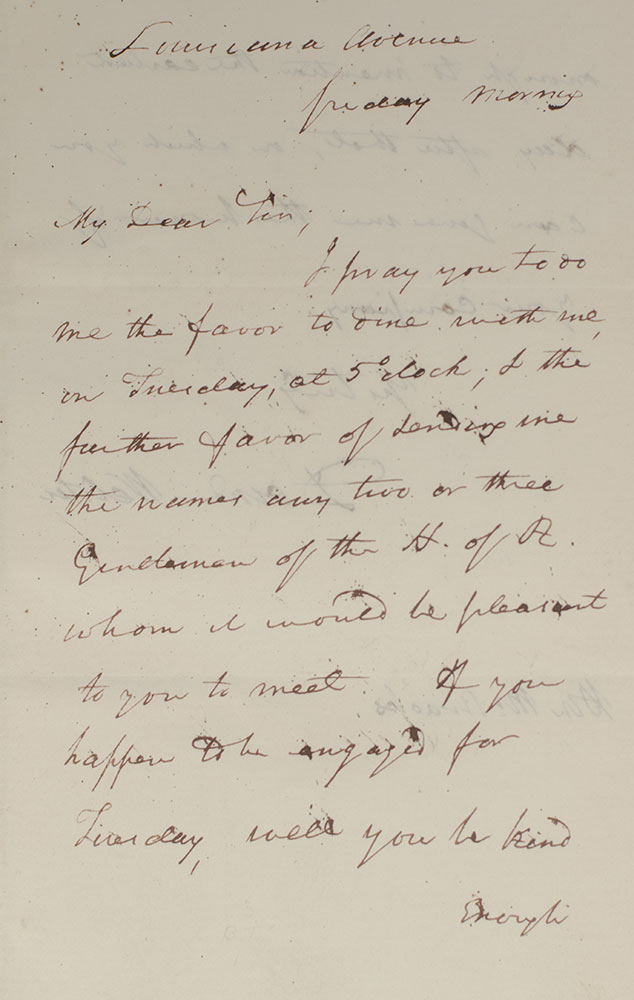 Louisiana Avenue
friday morning
My Dear Sir;
I pray you to do
me the favor to dine with me,
on Tuesday, at 5 o'clock; & the
further favor of sending me
the names any two or three
Gentlemen of the H. of R.
whom it would be pleasant
to you to meet. If you
happen to be engaged for
Tuesday, will you be kind
enough